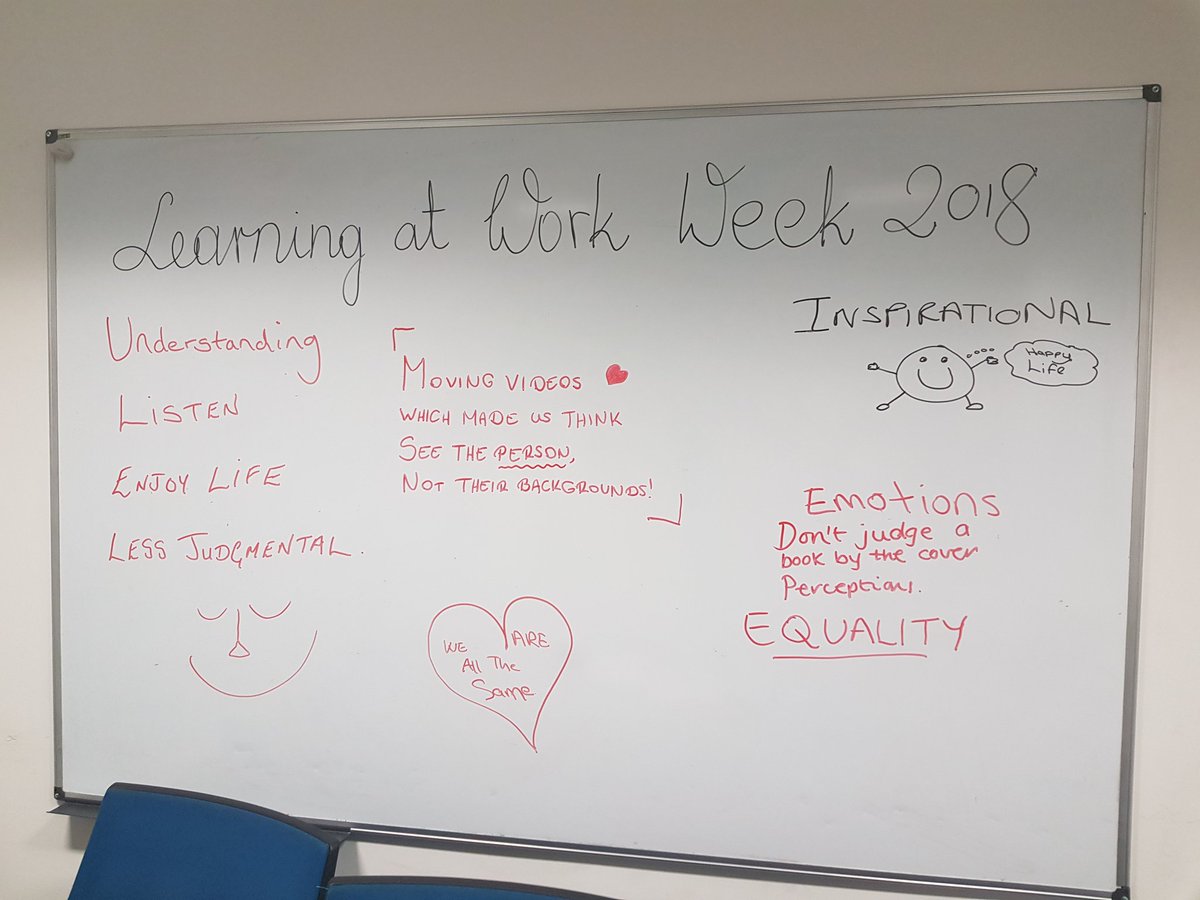 Learning at Work Week 2018
Understanding
LiSTEN
ENJOY LiFE
LESS JUDGMENTAL.
MOVING VIDEOS
WHICH MADE US THINK
SEE THE PERSON,
NOT THEIR BACKGROUNDS!
WE ARE
All The
Same
INSPIRATIONAL
Happy
Life
Emotions
Don't judge a
book by the cover
Perceptions.
EQUALITY